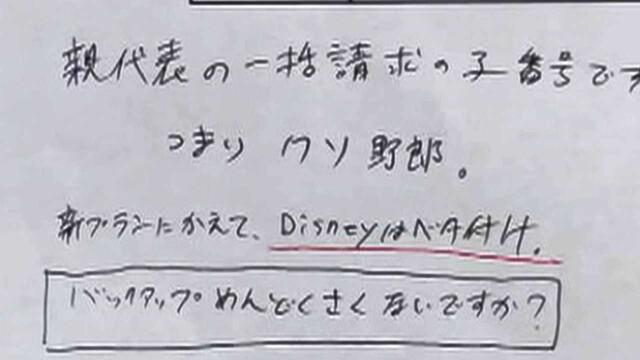 親代表の一括請求の子番号です
つまり クソ野郎。
新プランにかえて、Disneyはベタ付け。
バックアップめんどくさくないですか?